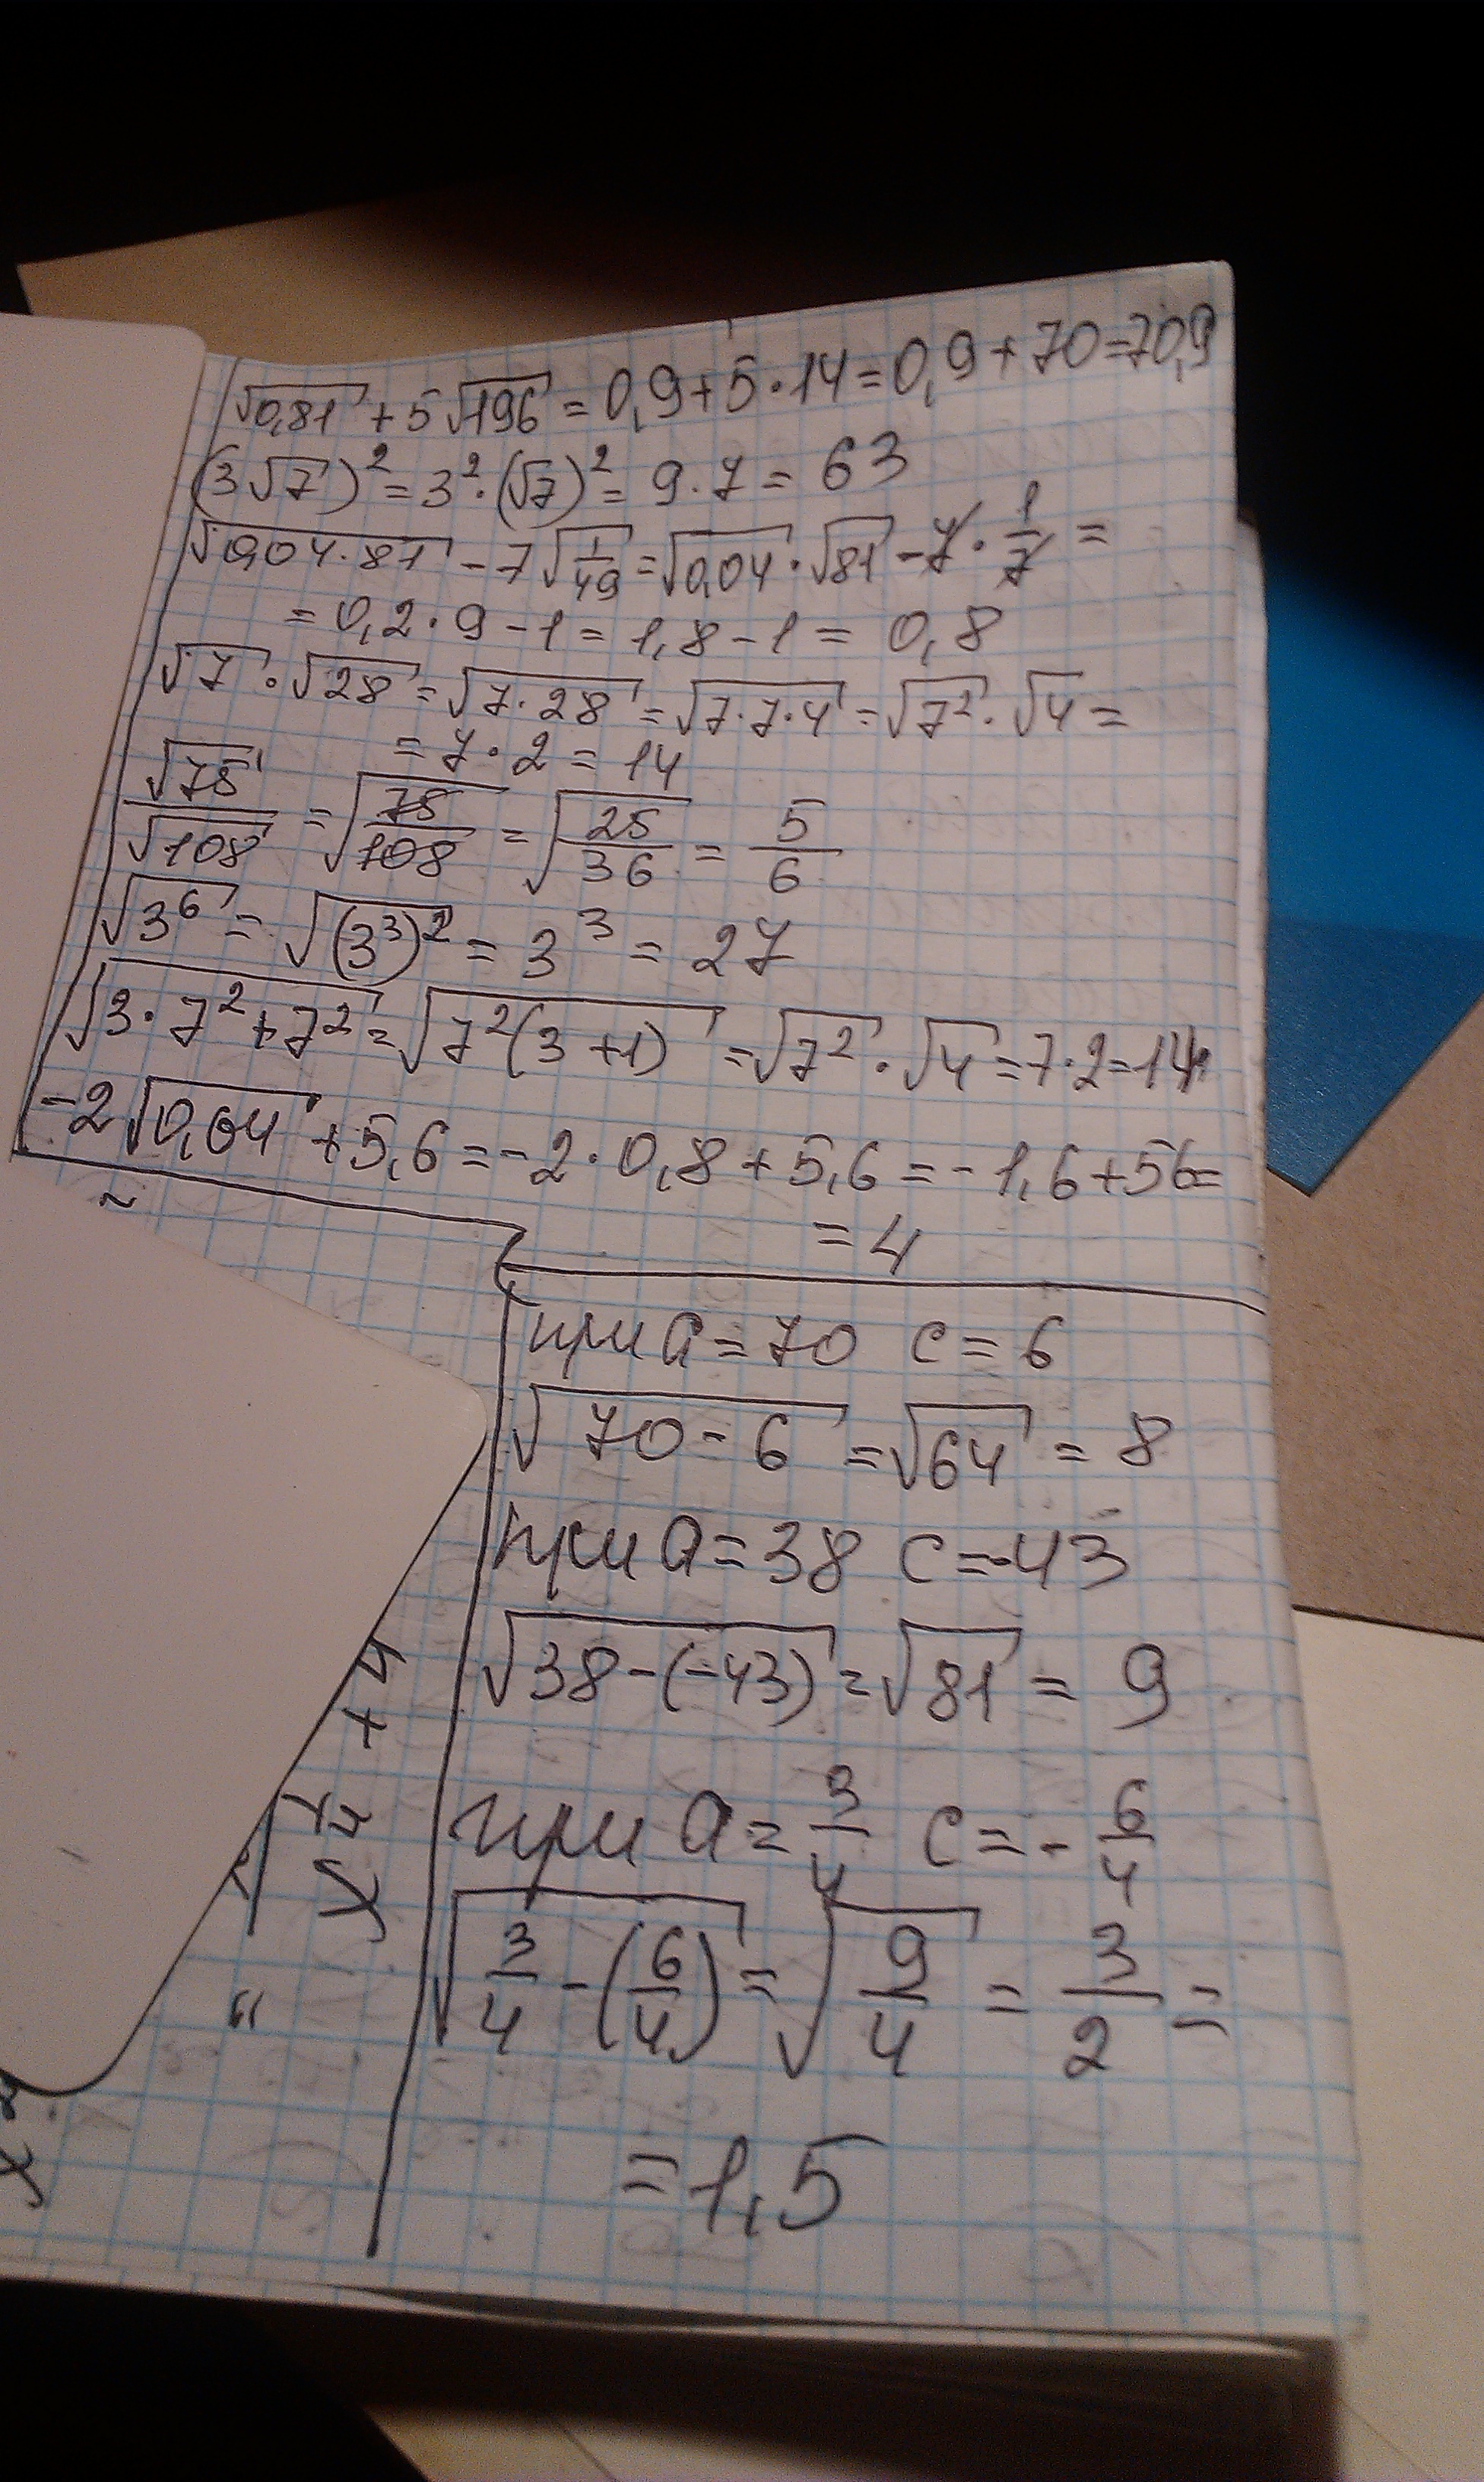 √0,81 + 5√196 = 0,9 + 5·14 = 0,9 + 70 = 70,9
(3√7)² = 3²·(√7)² = 9·7 = 63
√0,04·81 - 7√1/49 = √0,04·√81 - 7·1/7 =
= 0,2·9 - 1 = 1,8 - 1 = 0,8
√7·√28 = √7·28 = √7·7·4 = √7²·√4 =
= 7·2 = 14
√75/√108 = √75/108 = √25/36 = 5/6
√3⁶ = √(3³)² = 3³ = 27
√3·7²+7² = √7²(3+1) = √7²·√4 = 7·2 = 14
-2√0,64 + 5,6 = -2·0,8 + 5,6 = -1,6 + 56 =
= 4
при a = 70 c = 6
√70 - 6 = √64 = 8
при a = 38 c = -43
√38-(-43) = √81 = 9
при a = 3/4 c = - 6/4
√3/4 - (6/4) = √9/4 = 3/2 =
= 1,5